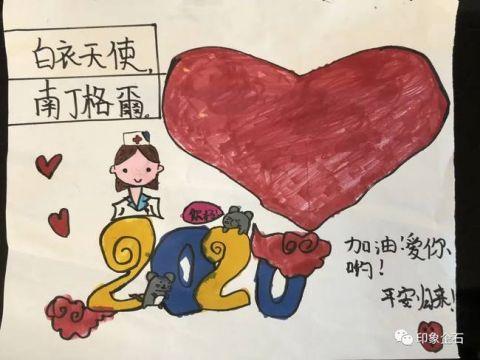 白衣天使,
南丁格爾。
2020
加油!爱你
哟!
平安归来!
印象企石